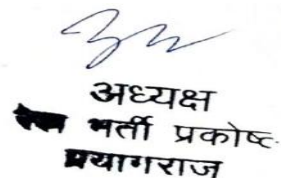 अध्यक्ष
रेल भर्ती प्रकोष्ठ
प्रयागराज